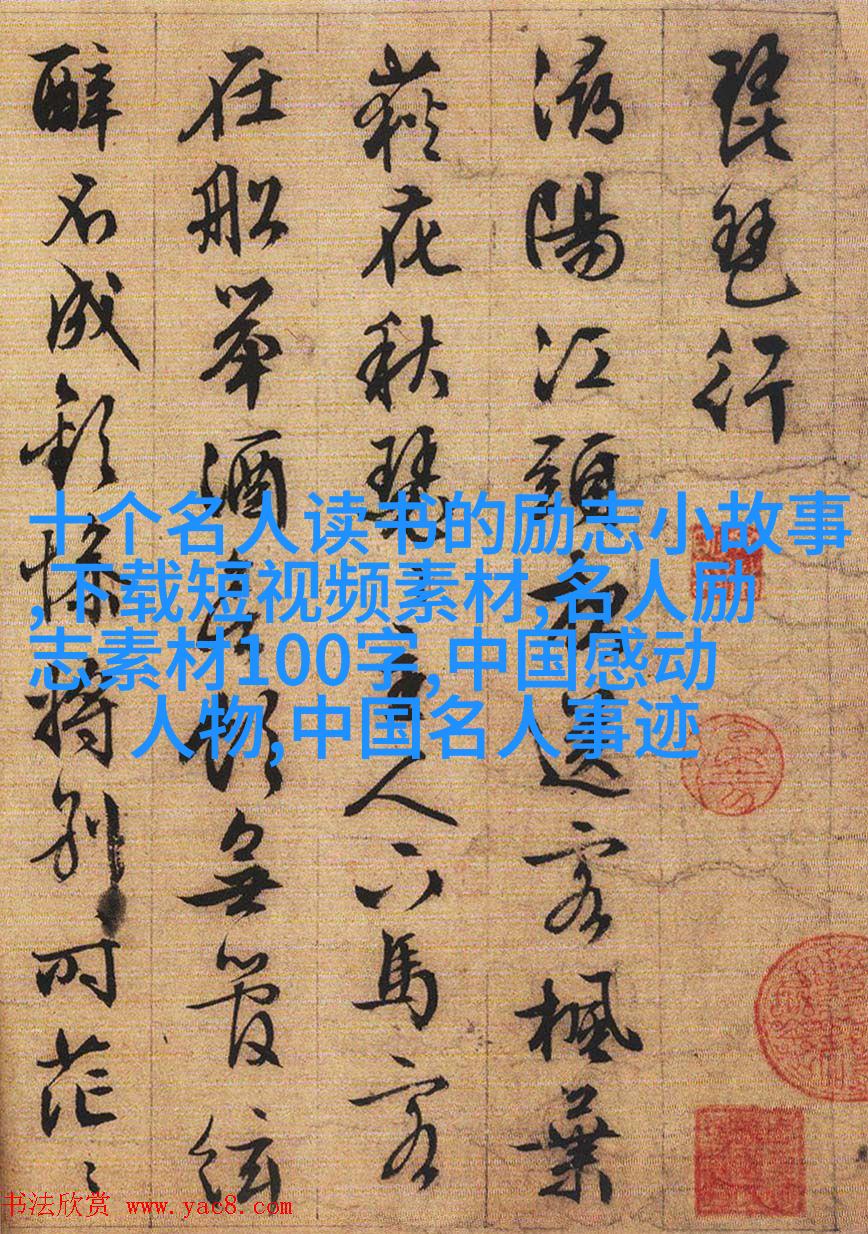 琵琶行
潯陽江頭夜送客楓葉
荻花秋瑟〻主人下馬客
在船舉酒欲飲無管絃
醉不成歡慘將別時茫〻
十个名人读书的励志小故事
,下载短视频素材,名人励
志素材100字,中国感动
人物,中国名人事迹
书法欣赏 www.yac8.com